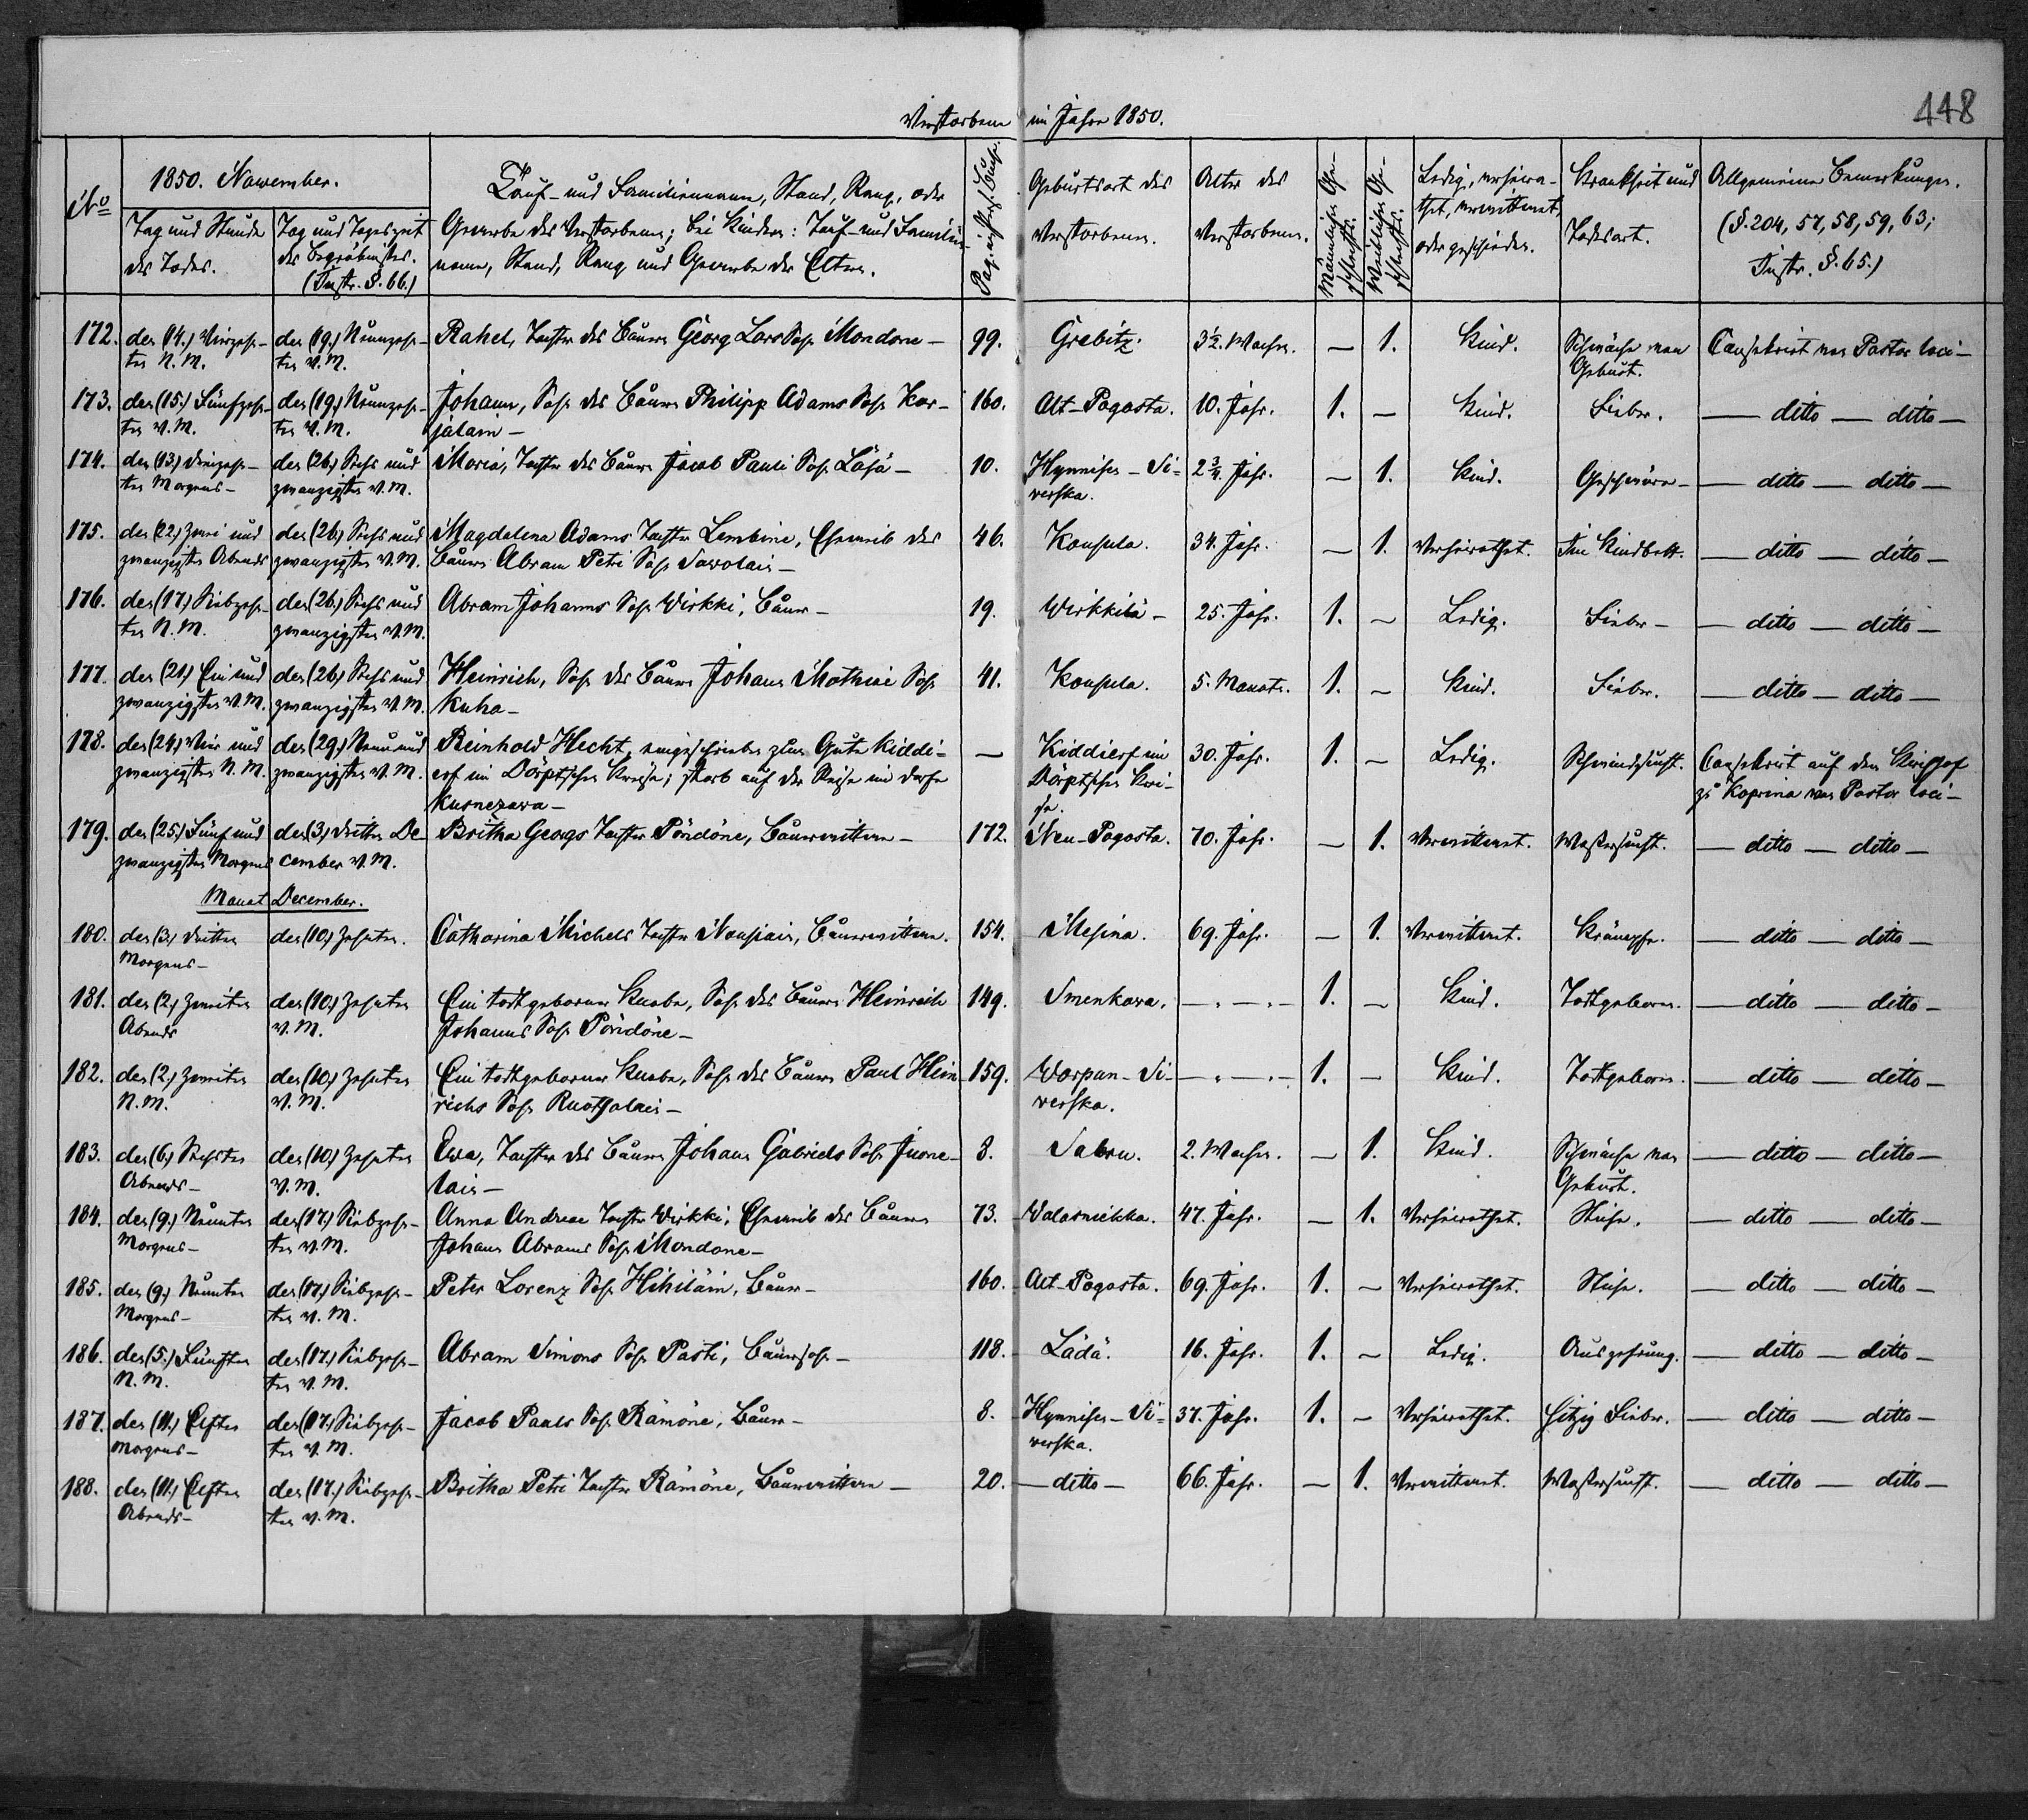 448
Verstorbene im Jahre 1850.
No
1850. November.
Tag und Stunde des Todes.
Tag und Tageszeit des Begräbnisses. (Instr. §. 66.)
Tauf- und Familienname, Stand, Rang, oder Gewerbe des Verstorbenen; bei Kindern: Tauf- und Familienname, Stand, Rang und Gewerbe der Eltern.
Geburtsort des Verstorbenen.
Alter des Verstorbenen.
Männlichen Geschlechts.
Weiblichen Geschlechts.
Ledig, verheirathet, verwittwet, oder geschieden.
Krankheit und Todesart.
Allgemeine Bemerkungen. (§. 204, 57, 58, 59, 63; Instr. §. 65.)
172. den (14.) Vierzehnten N.M. den (19.) Neunzehnten V.M. Rahel, Tochter des Bauern Georg Lars Sohn Mondone – 99. Grebitz. 3½. Wochen. – 1. Kind. Schwäche von Geburt. Consekrirt von Pastor loci –
173. den (15.) Fünfzehnten V.M. den (19.) Neunzehnten V.M. Johann, Sohn des Bauern Philipp Adams Sohn Karjalain – 160. Alt-Pogosta. 10. Jahr. 1. – Kind. Fieber. – ditto – ditto –
174. den (13.) Dreizehnten Morgens – den (26.) Sechs und zwanzigsten V.M. Maria, Tochter des Bauern Jacob Pauli Sohn Läjä – 10. Hynnisen-Siverska. 2¾. Jahr. – 1. Kind. Geschwüre – – ditto – ditto –
175. den (22.) Zwei und zwanzigsten Abends den (26.) Sechs und zwanzigsten V.M. Magdalena Adams Tochter Lembine, Eheweib des Bauern Abram Petri Sohn Sawolain – 46. Konsula. 34. Jahr. – 1. Verheirathet. Im Kindbett. – ditto – ditto –
176. den (17.) Siebzehnten N.M. den (26.) Sechs und zwanzigsten V.M. Abram Johanns Sohn Wirkki, Bauer – 19. Wirkkilä – 25. Jahr. 1. – Ledig. Fieber – – ditto – ditto –
177. den (21.) Ein und zwanzigsten V.M. den (26.) Sechs und zwanzigsten V.M. Heinrich, Sohn des Bauern Johann Mathiae Sohn Kuha – 41. Konsula. 5. Monate. 1. – Kind. Fieber. – ditto – ditto –
178. den (24.) Vier und zwanzigsten N.M. den (29.) Neun und zwanzigsten V.M. Reinhold Hecht, angeschrieben zum Gute Kiddierf im Dörptschen Kreise; starb auf der Reise im Dorfe Kusnezowa – – Kiddierf im Dorptschen Kreise. 30. Jahr. 1. – Ledig. Schwindsucht. Consekrirt auf dem Kirchhof zu Koprina von Pastor loci –
179. den (25.) Fünf und zwanzigsten Morgens den (3.) Dritten December V.M. Britha Georgs Tochter Pöndöne, Bauerwittwe – 172. Neu-Pogosta. 70. Jahr. – 1. Verwittwet. Wassersucht. – ditto – ditto –
Monat December.
180. den (3.) Dritten Morgens – den (10.) Zehnten. Catharina Michels Tochter Nousiain, Bauerwittwe. 154. Mesina. 69. Jahr. – 1. Verwittwet. Krämpfe. – ditto – ditto –
181. den (2.) Zweiten Abends den (10.) Zehnten V.M. Ein todtgeborner Knabe, Sohn des Bauern Heinrich Johanns Sohn Pöndöne – 149. Smenkowa. – „ – „ – 1. – Kind. Todtgeboren. – ditto – ditto –
182. den (2.) Zweiten N.M. den (10.) Zehnten V.M. Ein todtgeborner Knabe, Sohn des Bauern Paul Heinrichs Sohn Ruotsalain – 159. Worpan-Siverska. – „ – „ – 1. – Kind. Todtgeboren. – ditto – ditto –
183. den (6.) Sechsten Abends – den (10.) Zehnten V.M. Ewa, Tochter des Bauern Johann Gabriels Sohn Juonelain – 8. 2. Wochen. – 1. Kind. Schwäche von Geburt. – ditto – ditto –
184. den (9.) Neunten Morgens – den (17.) Siebzehnten V.M. Anna Andreae Tochter Wirkki, Eheweib des Bauern Johann Abrams Sohn Mondone – 73. Walasnickka. 47. Jahr. – 1. Verheirathet. – ditto – ditto –
185. den (9.) Neunten Morgens – den (17.) Siebzehnten V.M. Peter Lorenz Sohn Hihiläin, Bauer – 160. Alt-Pogosta. 69. Jahr. 1. – Verheirathet. – ditto – ditto –
186. den (5.) Fünften N.M. den (17.) Siebzehnten V.M. Abram Simons Sohn Pasti, Bauersohn – 118. Lädä. 16. Jahr. 1. – Ledig. Auszehrung. – ditto – ditto –
187. den (11.) Elften Morgens – den (17.) Siebzehnten V.M. Jacob Pauls Sohn Rämöne, Bauer – 8. Hynnisen-Siverska. 37. Jahr. 1. – Verheirathet. Hitzig Fieber. – ditto – ditto –
188. den (11.) Elften Abends – den (17.) Siebzehnten V.M. Britha Petri Tochter Rämöne, Bauerwittwe – 20. – ditto – 66. Jahr. – 1. Verwittwet. Wassersucht. – ditto – ditto –